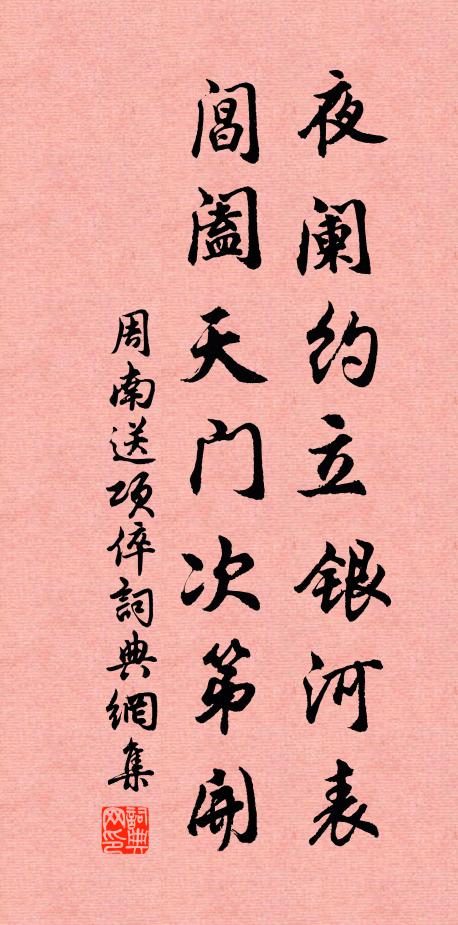 夜阑约立银河表
阊阖天门次第开
周南送项倅詞典網集
詞典網印